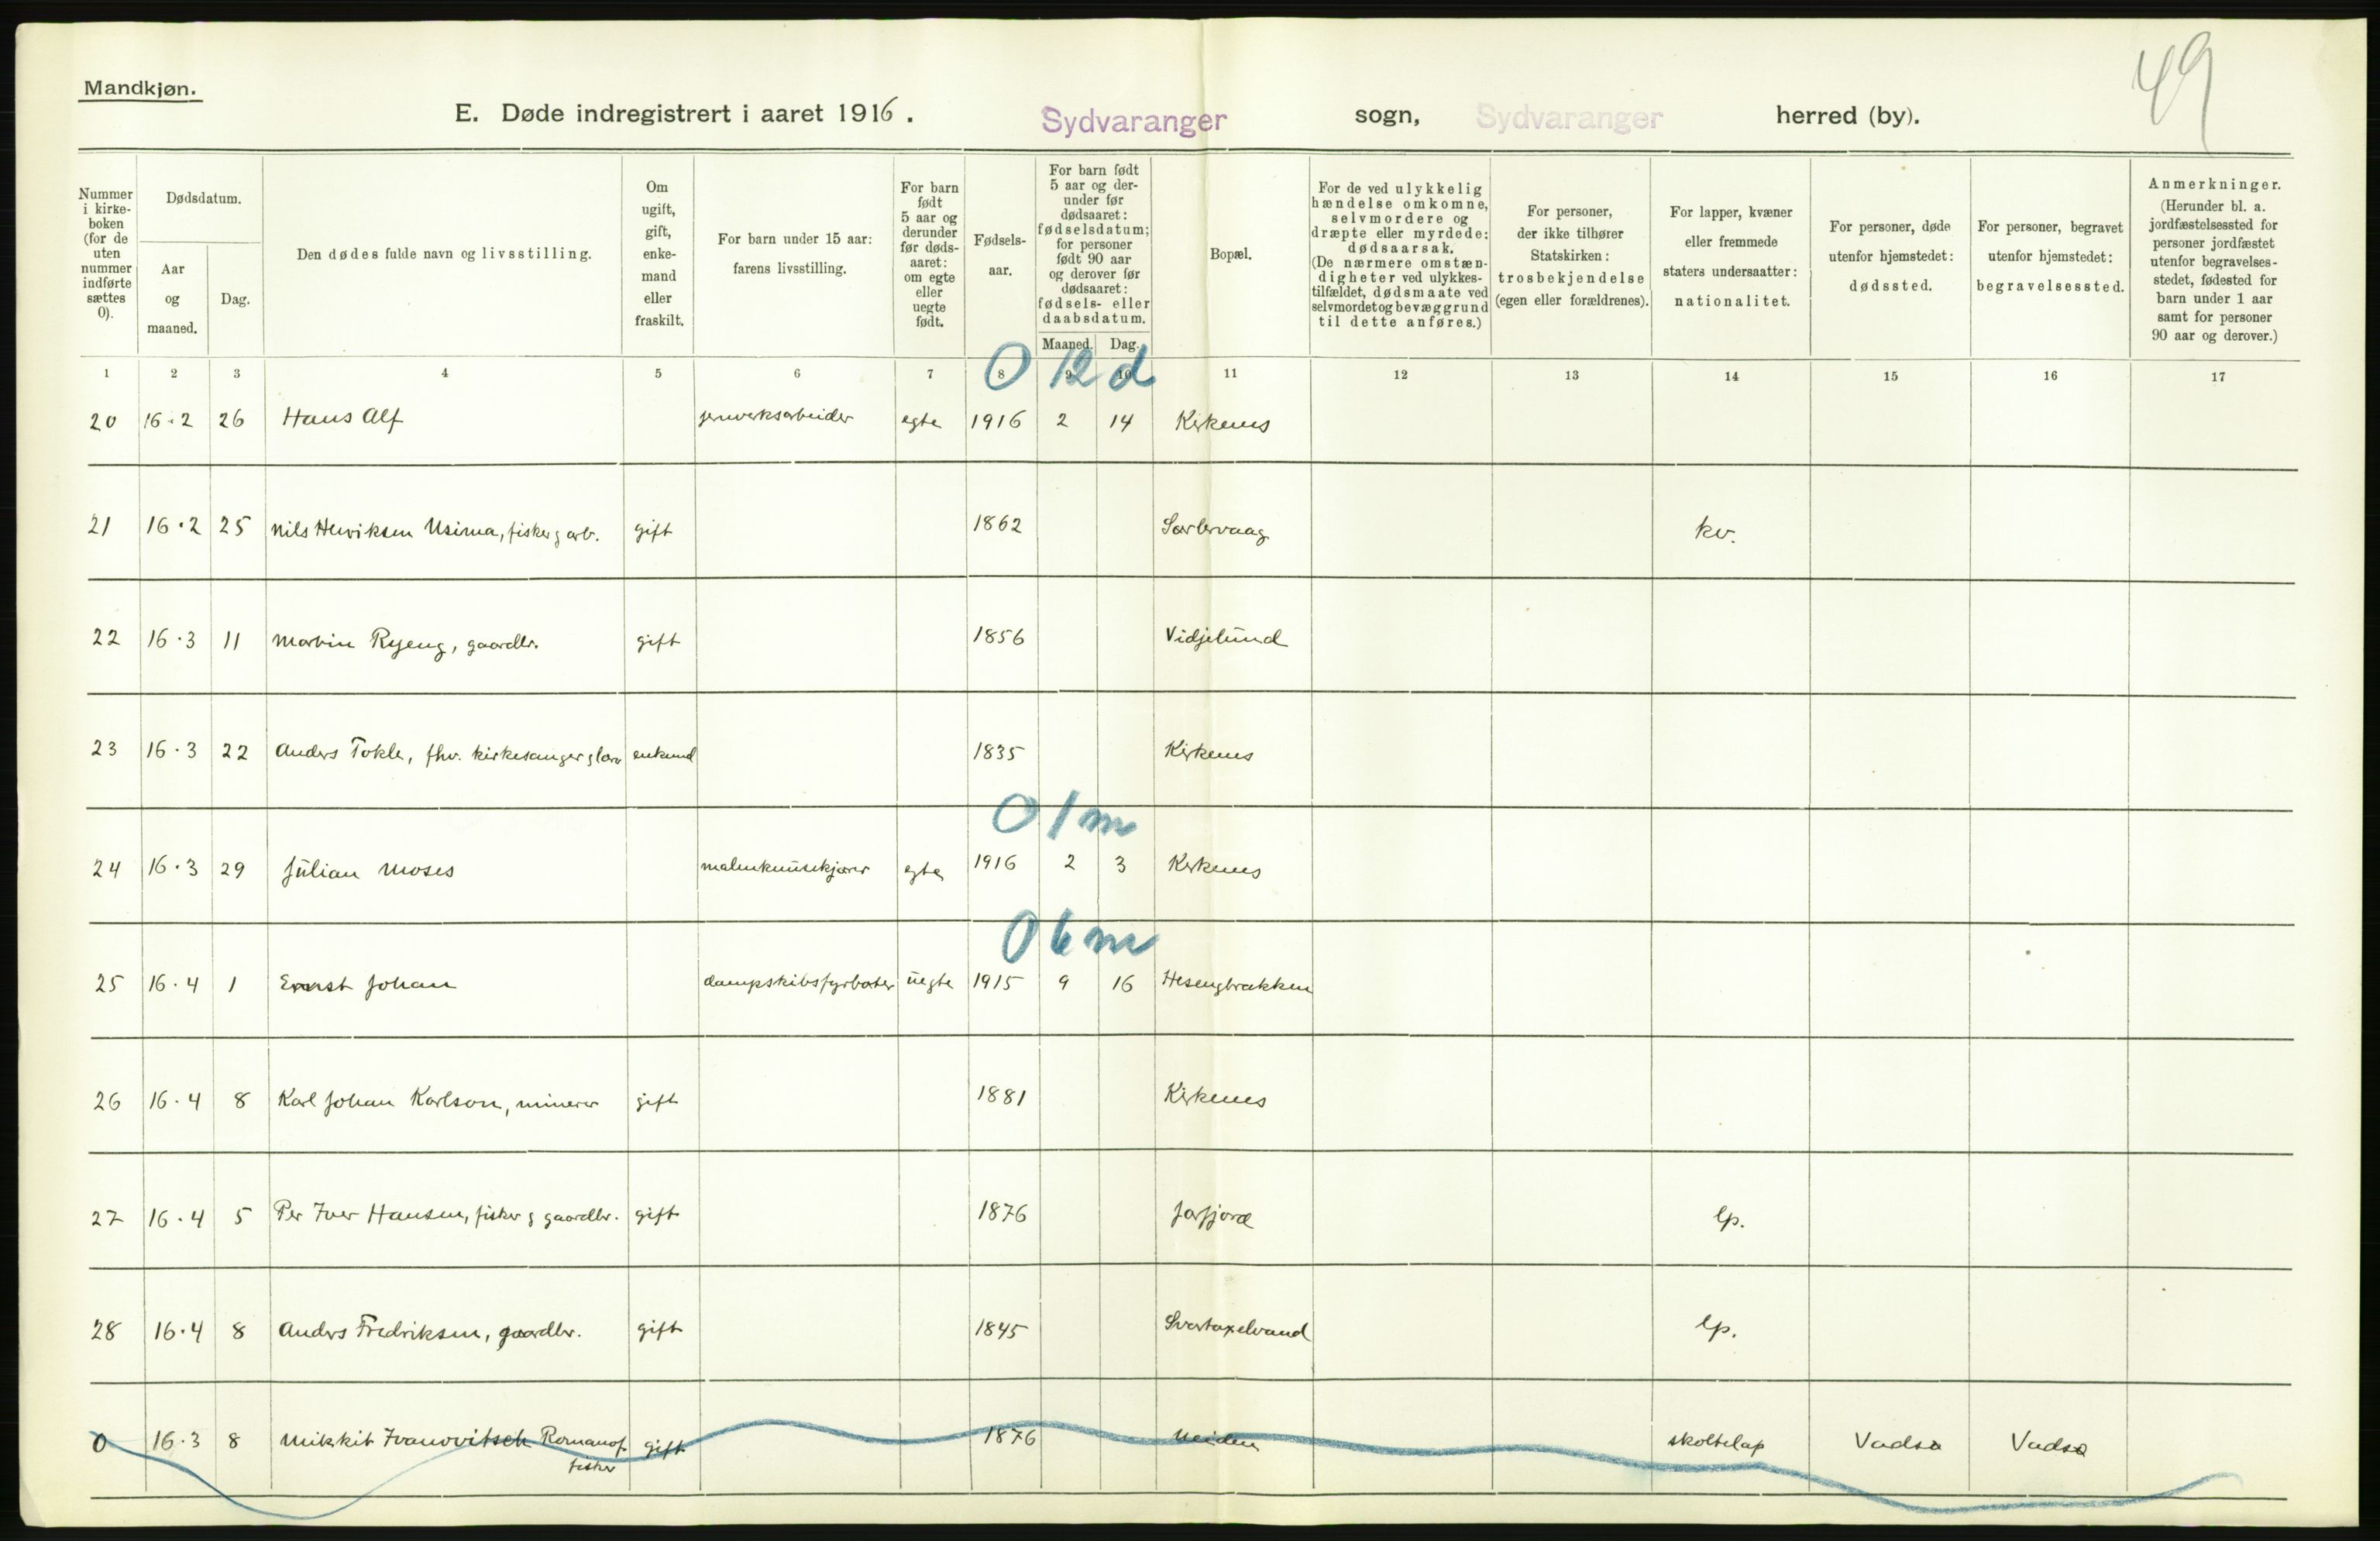 Mandkjøn.
49
E. Døde indregistrert i aaret 1916. Sydvaranger sogn, Sydvaranger herred (by).
Nummer i kirke- boken (for de uten nummer indførte sættes 0).
Dødsdatum.
Aar og maaned.
Dag.
Den dødes fulde navn og livsstilling.
Om ugift, gift, enke- mand eller fraskilt.
For barn under 15 aar: farens livsstilling.
For barn født 5 aar og derunder før døds- aaret: om egte eller uegte født.
Fødsels- aar.
For barn født 5 aar og der- under før dødsaaret: fødselsdatum; for personer født 90 aar og derover før dødsaaret: fødsels- eller daabsdatum.
Maaned. Dag.
Bopæl.
For de ved ulykkelig hændelse omkomne, selvmordere og dræpte eller myrdede: dødsaarsak. (De nærmere omstæn- digheter ved ulykkes- tilfældet, dødsmaate ved selvmordet og bevæggrund til dette anføres.)
For personer, der ikke tilhører Statskirken: trosbekjendelse (egen eller forældrenes).
For lapper, kvæner eller fremmede staters undersaatter: nationalitet.
For personer, døde utenfor hjemstedet: dødssted.
For personer, begravet utenfor hjemstedet: begravelsessted.
Anmerkninger. (Herunder bl. a. jordfæstelsessted for personer jordfæstet utenfor begravelses- stedet, fødested for barn under 1 aar samt for personer 90 aar og derover.)
1 2 3 4 5 6 7 8 9 10 11 12 13 14 15 16 17
0 12 d
20 16·2 26 Hans Alf jernverksarbeider egte 1916 2 14 Kirkenes
21 16·2 25 Nils Henriksen Usima, fisker g arb. gift 1862 kv.
22 16·3 11 Martin Ryeng, gaardbr. gift 1856 Vidjelund
23 16·3 22 Anders Tokle, fhv. kirkesanger g lærer enkemd 1835 Kirkenes
0 1 m
24 16·3 29 Julian Moses malmknusekjører egte 1916 2 3 Kirkenes
0 6 m
25 16·4 1 Ernst Johan dampskibsfyrbøter uegte 1915 9 16 Hesengbrakken
26 16·4 8 Karl Johan Karlson, minerer gift 1881 Kirkenes
27 16·4 5 Per Iver Hansen, fisker g gaardbr. gift 1876 Jarfjord lp.
28 16·4 8 Anders Fredriksen, gaardbr. gift 1845 lp.
0 16·3 8 Mikkit Ivanovitsch Romanof gift 1876 Neiden skoltelap Vadsø Vadsø
fisker